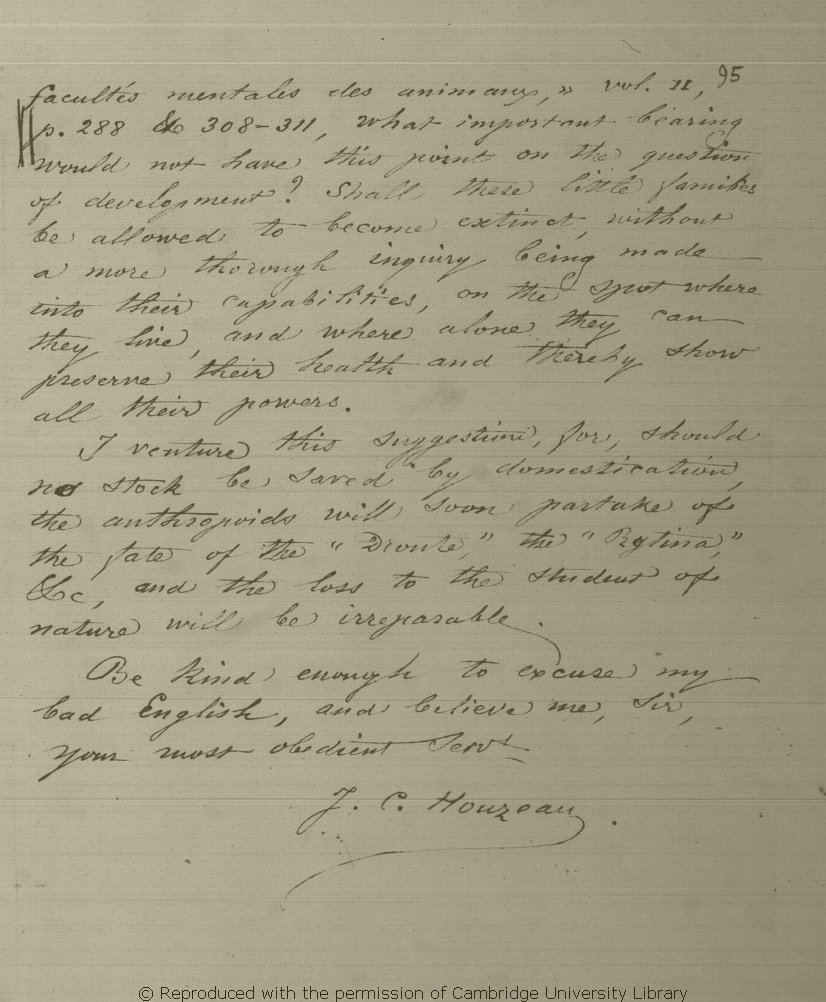 95
facultés mentales des animaux, » vol. II,
p. 288 & 308-311, what important bearing
would not have this point on the question
of development? Shall these little families
be allowed to become extinct, without
a more thorough inquiry being made
into their capabilities, on the spot where
they live, and where alone they can
preserve their health and thereby show
all their powers.
I venture this suggestion, for, should
no stock be saved by domestication,
the anthropoids will soon partake of
the fate of the "Dronte," the "Rytina,"
&c, and the loss to the student of
nature will be irreparable.
Be kind enough to excuse my
bad English, and believe me, Sir,
your most obedient Servt
J. C. Houzeau.
© Reproduced with the permission of Cambridge University Library